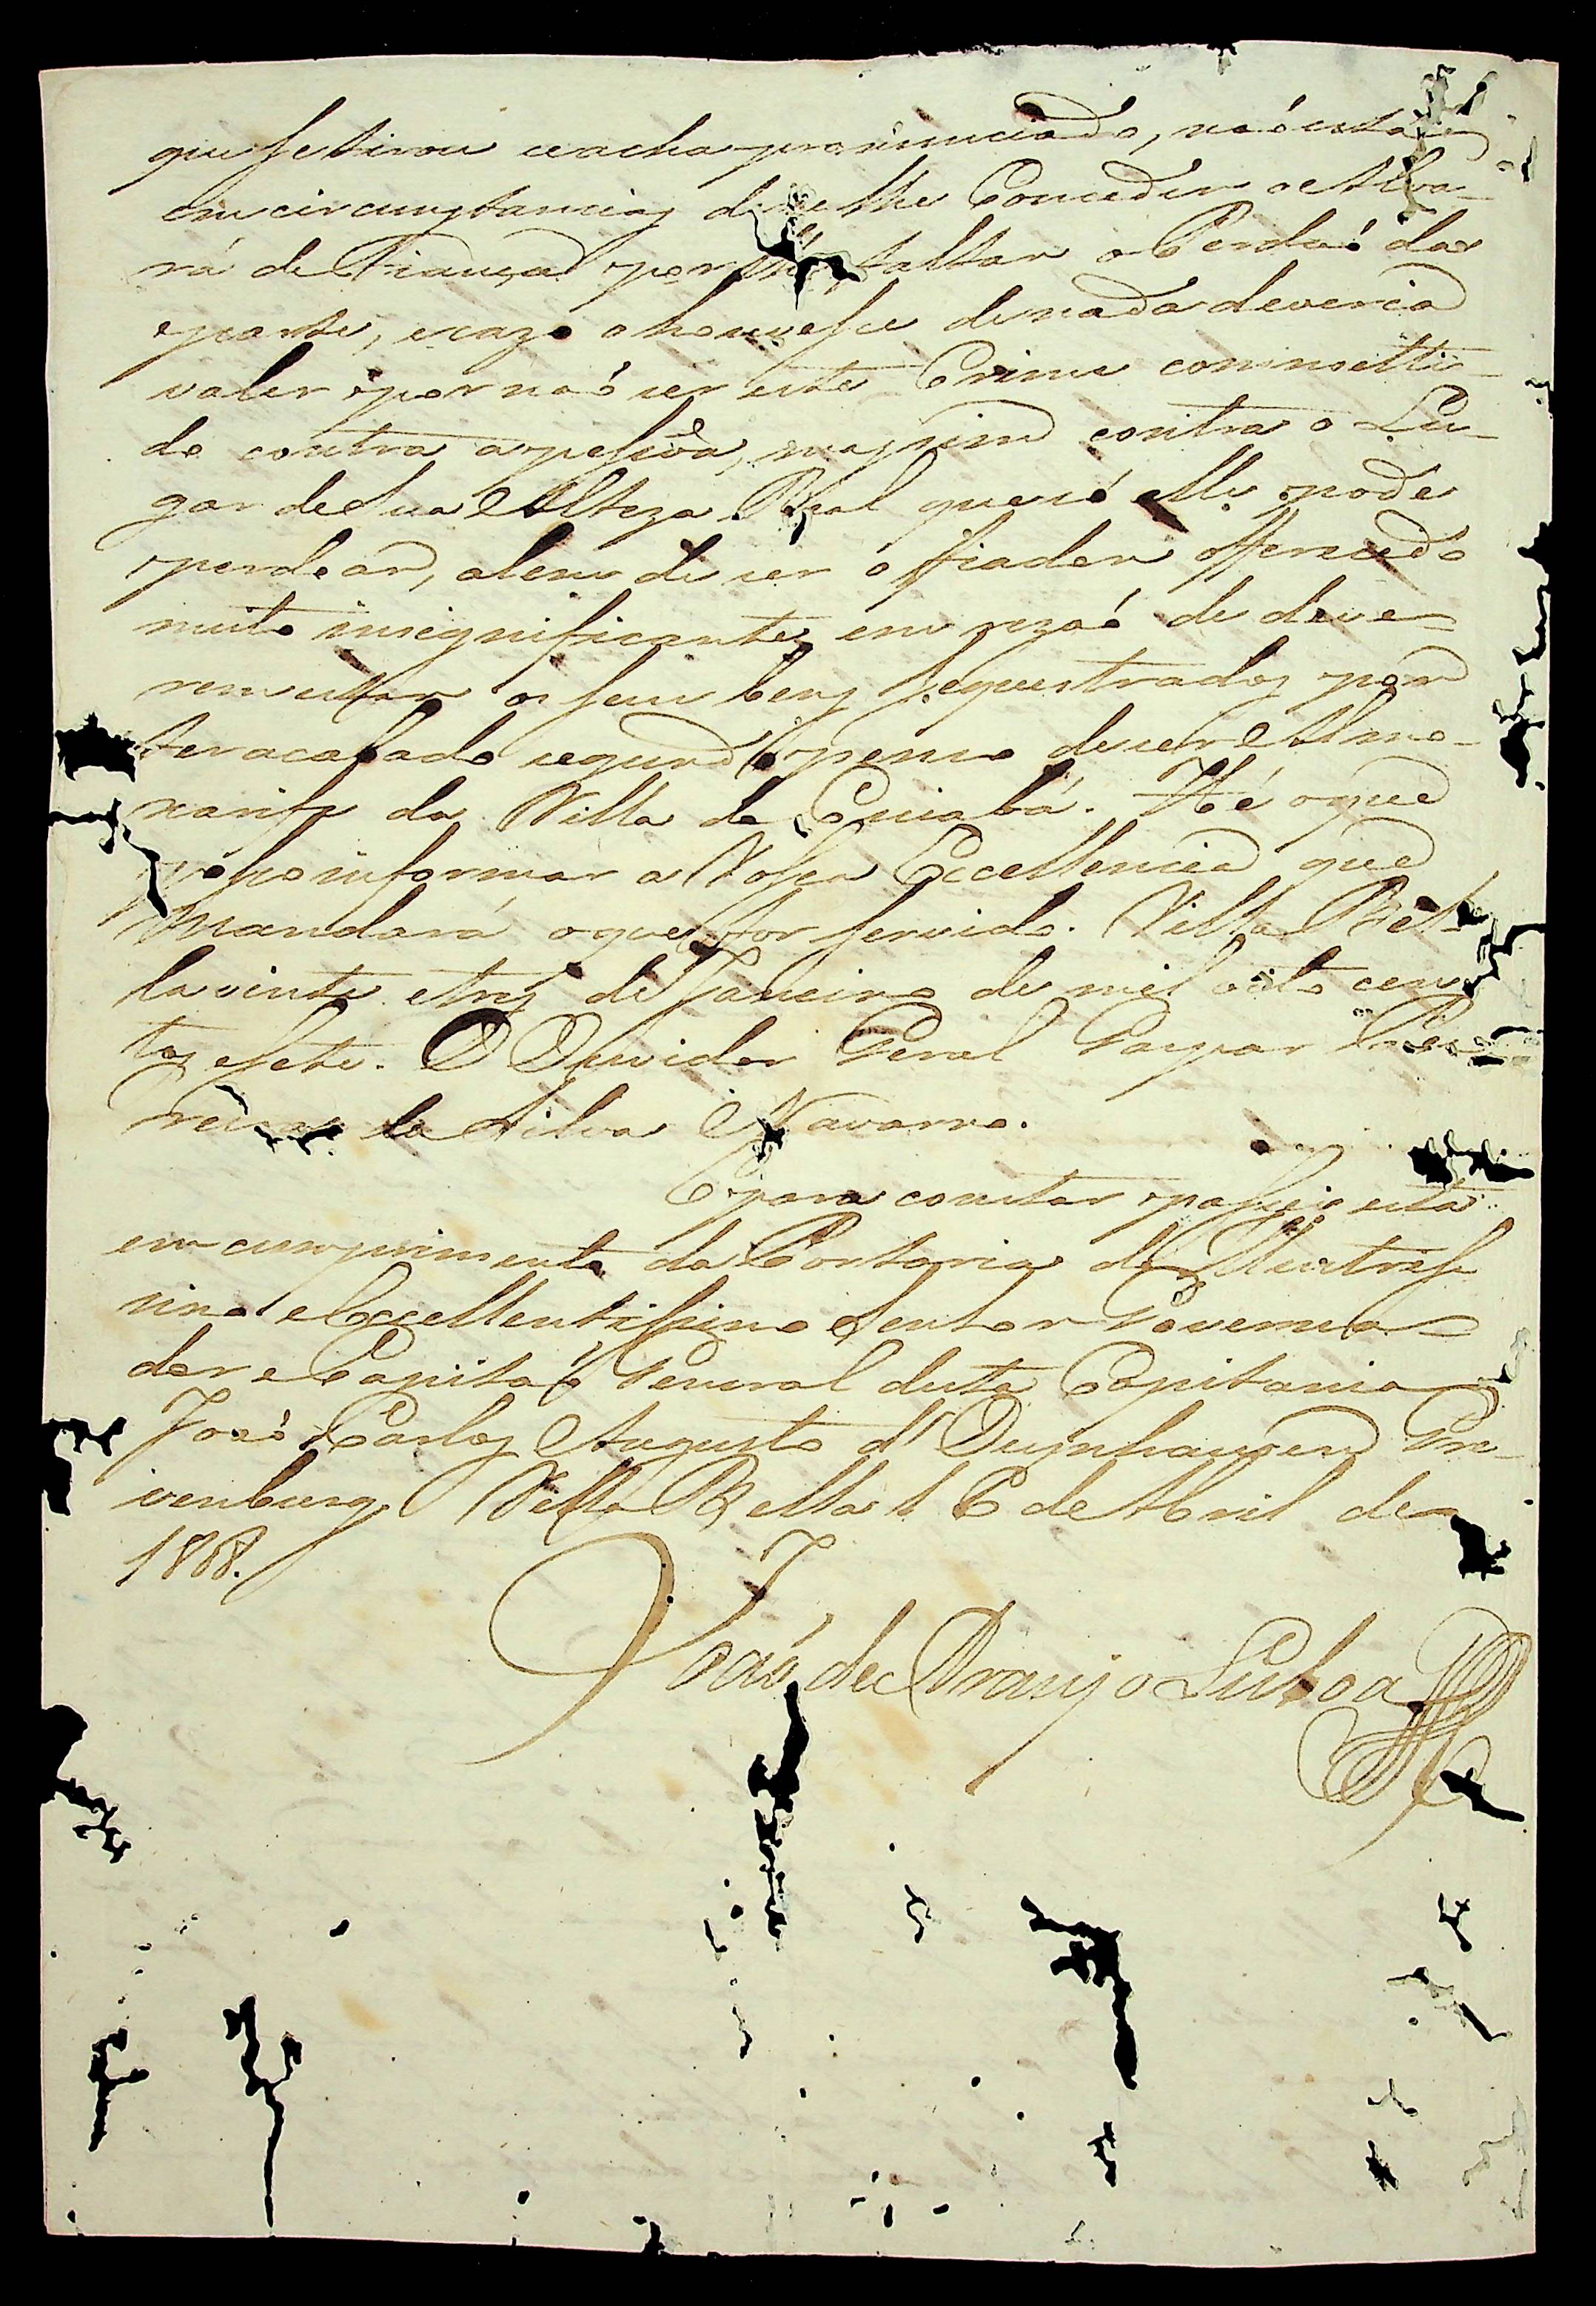 que se tirou se acha pronunciado, naõ está
em circunstancias de se lhe Conceder o Alva-
rá de Fiança por lhe faltar o Perdaõ da
parte, e cazo o houvesse de nada deveria
valer por naõ ser este Crime commetti-
do contra a pessoa, mas sim contra o Lu-
gar de Sua Alteza Real que só elle pode
perdoar, alem de ser o fiador offerecido
muito insignificante, em rezaõ de deve-
rem estar os seus bens sequestrados por
ter acabado segundo penso de ser Almo-
xarife da Villa de Cuiabá. Hé o que
posso informar a Vossa Excellencia que
Mandará o que for servido. Villa Bel-
la vinte e tres de Janeiro de mil oito cen-
tos e sete. O Ouvidor Geral Gaspar Pe-
reira da Silva Navarro.
E para constar passei esta
em cumprimento da Portaria do Illustrissi-
mo e Excellentissimo Senhor Governa-
dor e Capitaõ General desta Capitania
Joaõ Carlos Augusto d'Oeynhausen Gre-
venburg. Villa Bella 16 de Abril de
1808.
Joaõ de Araujo Lisboa